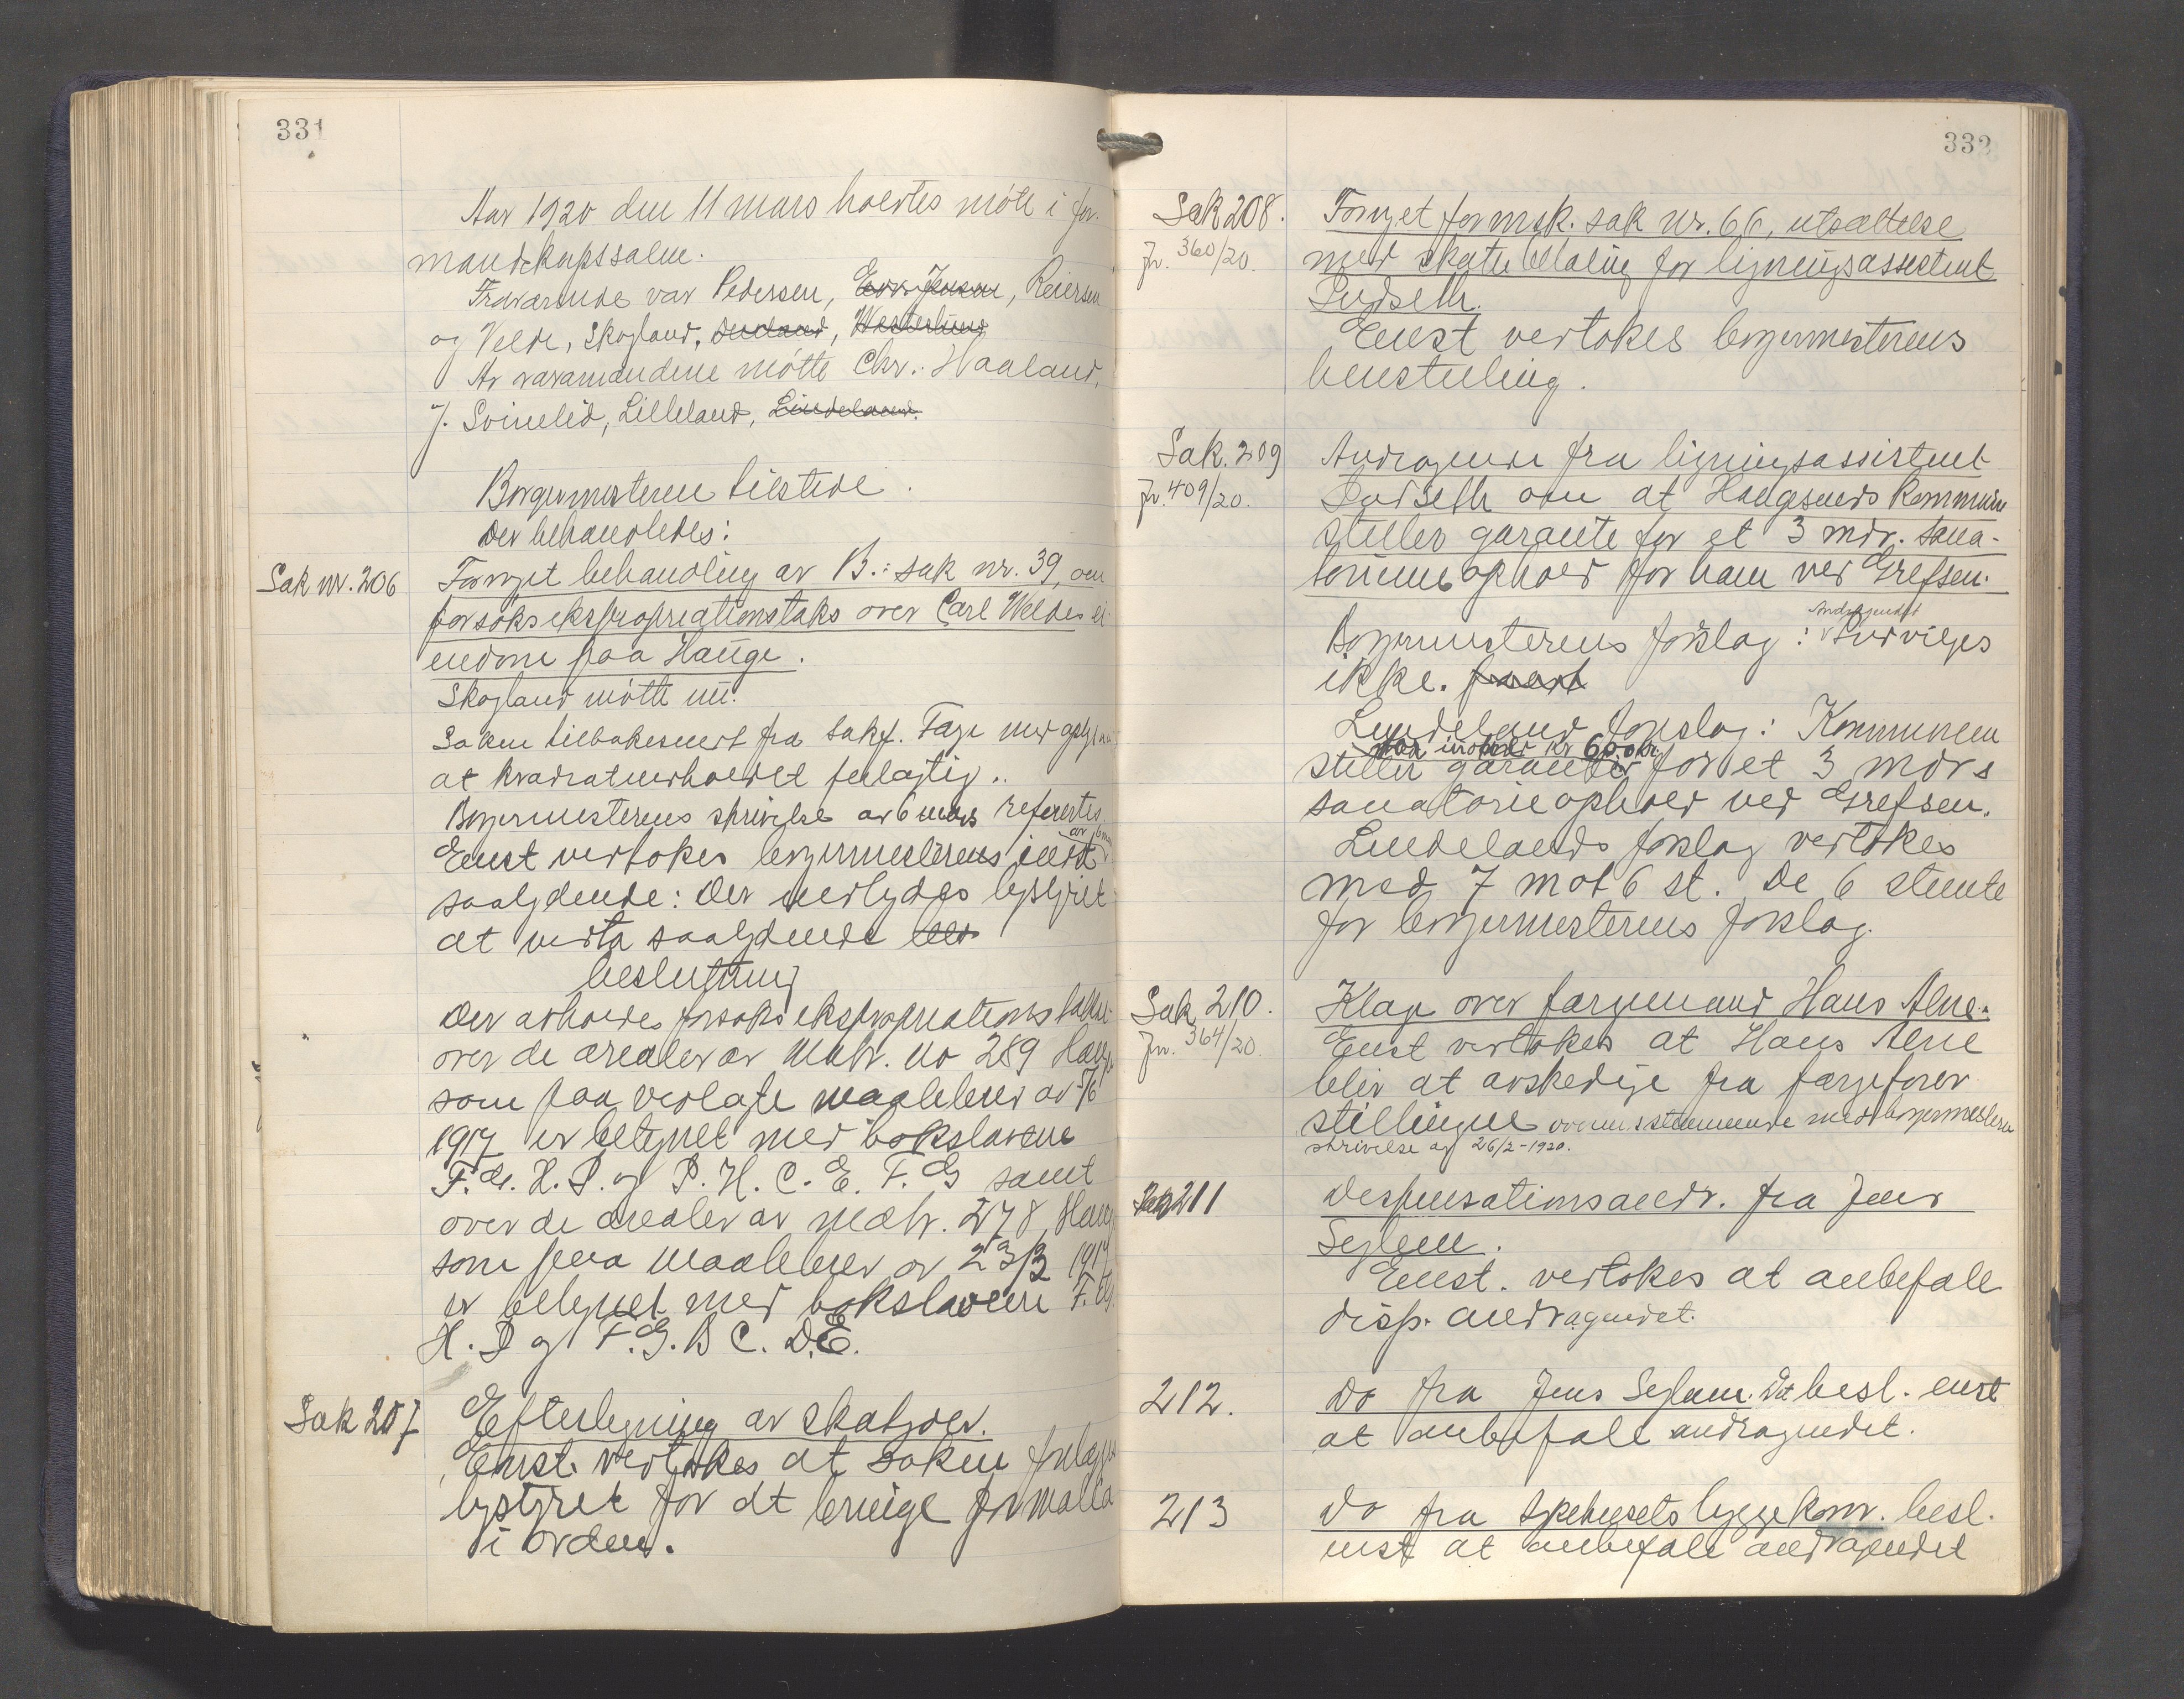 331
Aar 1920 den 11 mars holdtes møte i for-
mandskapssalen.
Fraværende var Pedersen, Edv. Jensen, Reiersen
og Velde, Skogland,
Av varamændene møtte Chr. Haaland,
J. Svinelid, Lilleland, Lindeland.
Borgermesteren tilstede.
Der behandledes:
Sak nr. 206
Fornyet behandling av B.: sak nr. 39, om
forsøksekspropriationstakst over Carl Weldes ei-
endom paa Hauge.
Skogland møtte nu.
Saken tilbakesendt fra sakf. Fage med oplysn
at kvadratinholdet feilagtig.
Borgermesterens skrivelse av 6 mars refereertes.
Enst vertokes borgermesterens indst
saalydende: Der indbydes bystyret
at vedta saalydende
beslutning
Der avholdes forsøksekspropriationstakst
over de arealer av Matr. no 289 Hauge
som paa vedlagte maalebrev av 7/6
1917 er betegnet med bokstavene
F. G. H. D. og D. H. C. E. F. G samt
over de arealer av matr. 278, Hauge
som paa maalebrev av 23/3 1917
er betegnet med bokstavene F. G.
H. D og F. G. B C. D. E.
Sak 207
Efterligning av skatyder.
Enst. vertokes at saken forelægges
bystyret for at bringe formalia
i orden.
332
Sak 208.
Jr. 360/20.
Fornyet formsk. sak nr. 66, utsættelse
med skattebetaling for ligningsassistent
Ludseth.
Enst vertokes borgermesterens
henstilling.
Sak. 209
Jr. 409/20.
Andragende fra ligningsassistent
Ludseth om at Haugesunds kommune
stiller garanti for et 3 mdr. sana-
torieophold for ham ved Grefsen.
Borgermesterens forslag: Andragendet indvilges
ikke.
Lindeland forslag: Kommunen
indtil kr 600 kr.
stiller garanti for et 3 mdrs
sanatorieophold ved Grefsen.
Lindelands forslag vertokes
med 7 mot 6 st. De 6 stemte
for borgermesterens forslag.
Sak 210.
Jr. 364/20.
Klage over færgemand Hans Alne.
Enst vertokes at Hans Alne
blir at avskedige fra færgefører-
stillingen overensstemmende med borgermesterens
skrivelse av 26/2-1920.
Sak 211
Dispensationsandr. fra Jens
Seglem.
Enst. vertokes at anbefale
disp. andragendet.
212.
Do fra Jens Seglem. Det besl. enst
at anbefale andragendet.
213
Do fra sykehusets byggekom. besl.
enst at anbefale andragendet